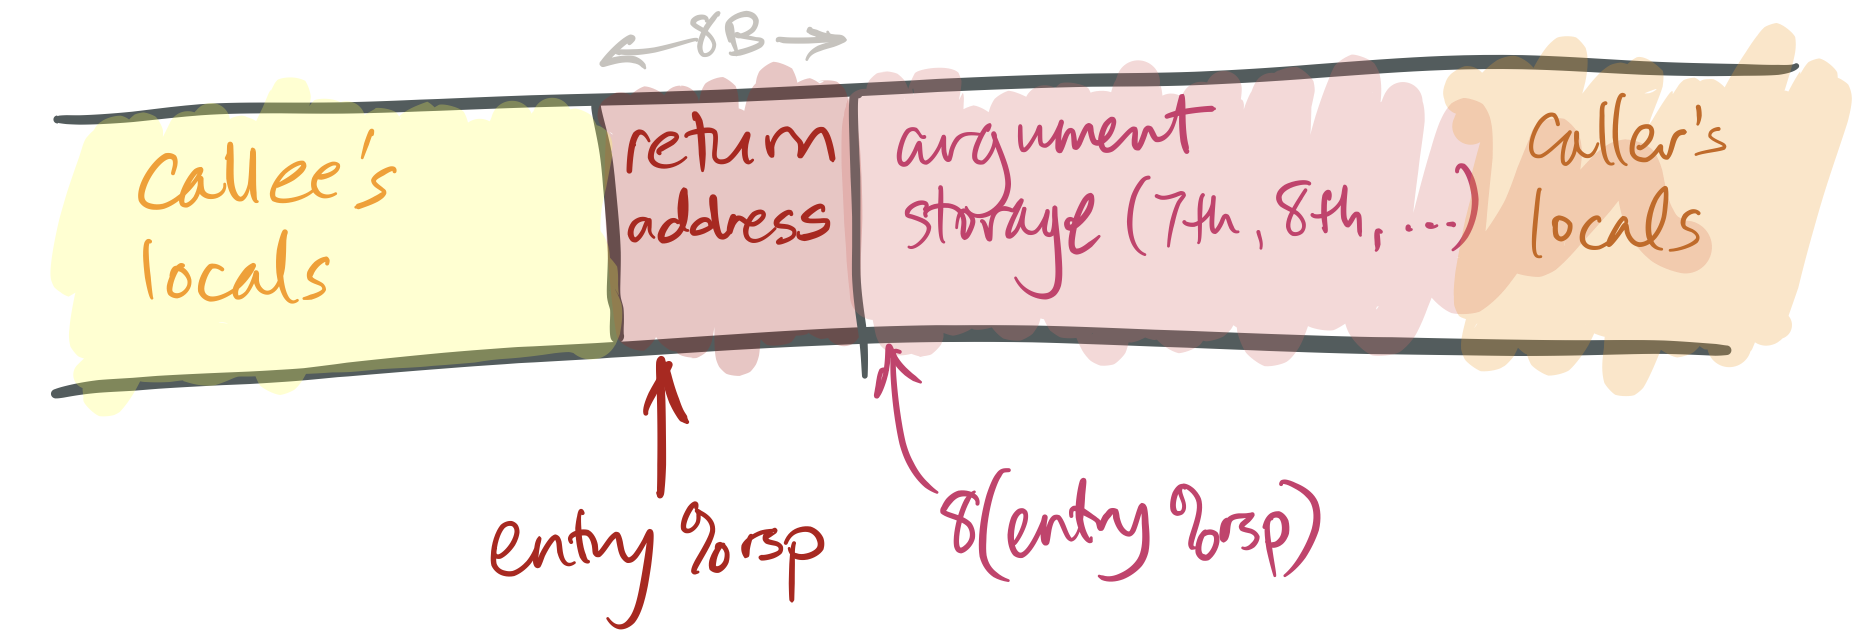 8B
callee's
locals
return
address
argument
storage (7th, 8th, ...)
caller's
locals
entry %rsp
8(entry %rsp)